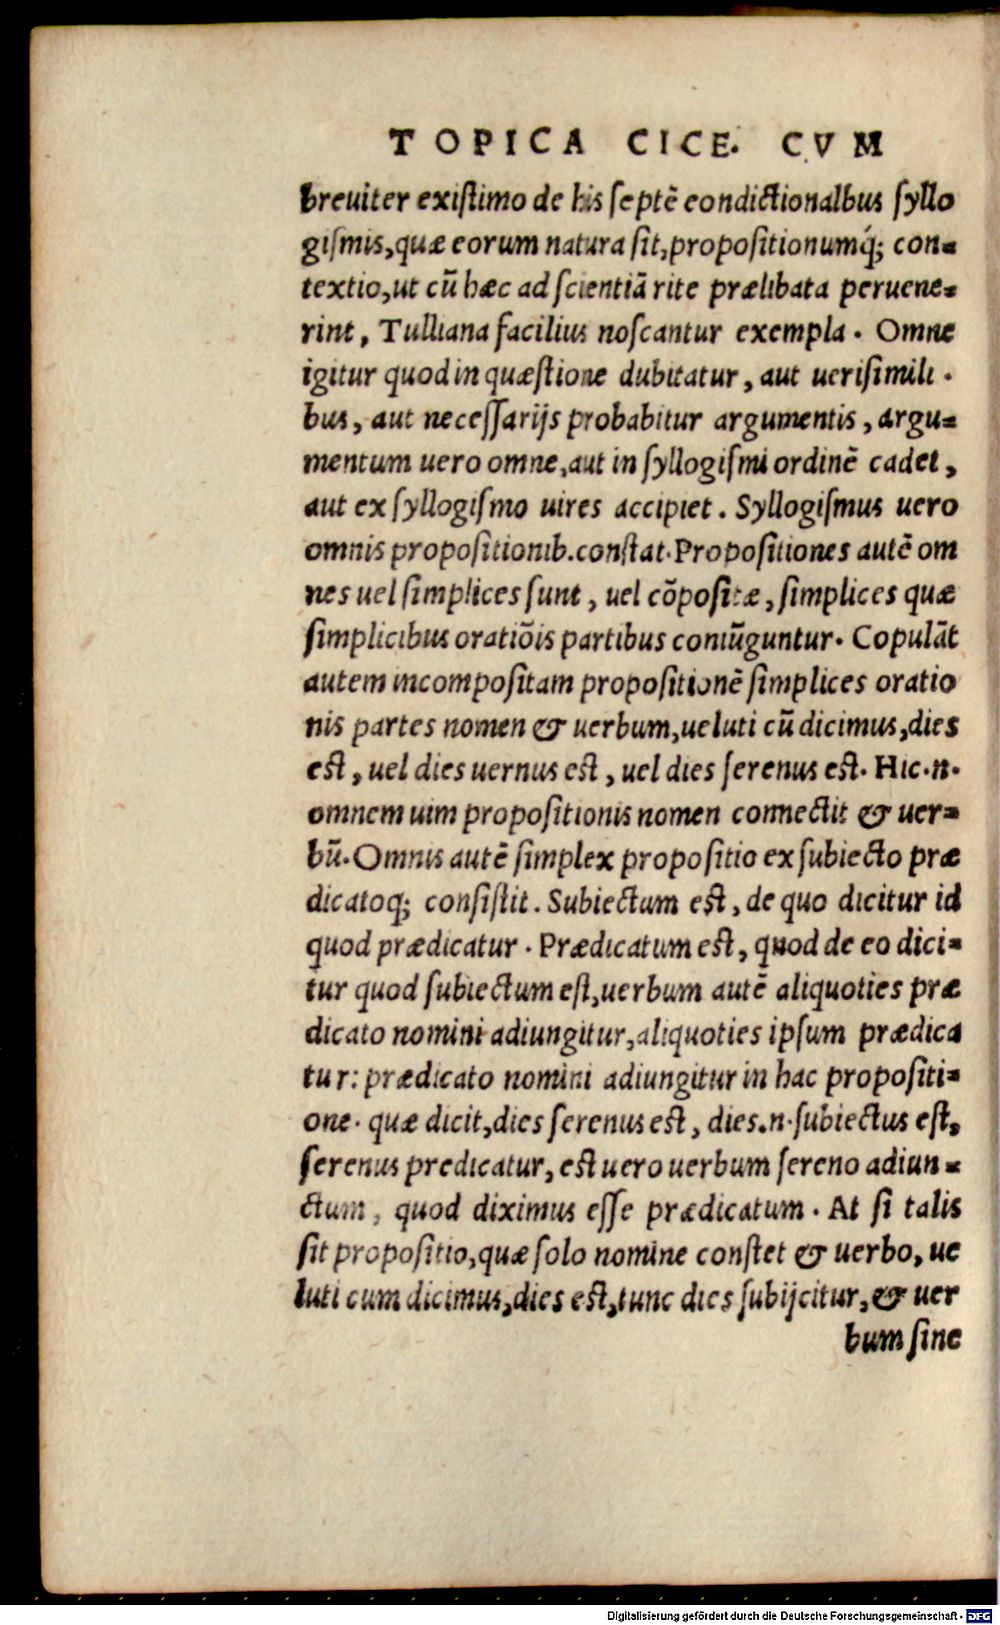 TOPICA CICE. CVM
breuiter existimo de his septē condictionalbus syllo
gismis, quæ eorum natura sit, propositionumq́; con=
textio, ut cū hæc ad scientiā rite prælibata peruene=
rint, Tulliana facilius noscantur exempla. Omne
igitur quod in quæstione dubitatur, aut uerisimili.
bus, aut necessarijs probabitur argumentis, argu=
mentum uero omne, aut in syllogismi ordinē cadet,
aut ex syllogismo uires accipiet. Syllogismus uero
omnis propositionib. constat. Propositiones autē om
nes uel simplices sunt, uel cōpositæ, simplices quæ
simplicibus oratiōis partibus coniūguntur. Copulāt
autem incompositam propositionē simplices oratio
nis partes nomen & uerbum, ueluti cū dicimus, dies
est, uel dies uernus est, uel dies serenus est. Hic.n.
omnem uim propositionis nomen connectit & uer=
bū. Omnis autē simplex propositio ex subiecto præ
dicatoq; consistit. Subiectum est, de quo dicitur id
quod prædicatur. Prædicatum est, quod de eo dici=
tur quod subiectum est, uerbum autē aliquoties præ
dicato nomini adiungitur, aliquoties ipsum prædica
tur: prædicato nomini adiungitur in hac propositi=
one. quæ dicit, dies serenus est, dies.n. subiectus est,
serenus predicatur, est uero uerbum sereno adiun=
ctum, quod diximus esse prædicatum. At si talis
sit propositio, quæ solo nomine constet & uerbo, ue
luti cum dicimus, dies est, tunc dies subijcitur, & uer
bum sine
Digitalisierung gefördert durch die Deutsche Forschungsgemeinschaft - DFG